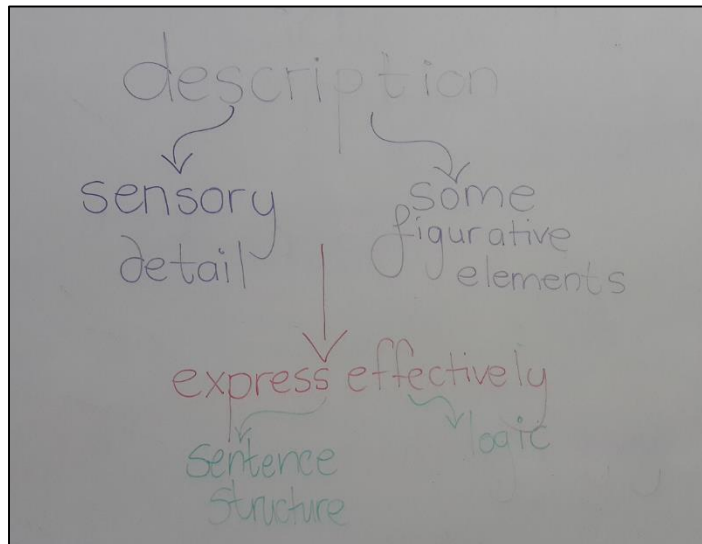 description
sensory
detail
some
figurative
elements
express effectively
sentence
structure
logic